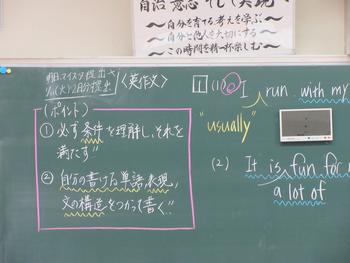 自治 意志 そして 実現
〜自分を育てる考えを学ぶ〜
〜自分と他人を大切にする〜
〜この時間を精一杯示す〜
提出
2日分提出
〈英作文〉
(ポイント)
① 必ず条件を理解し、それを
満たす"
② 自分の書ける単語、表現、
文の構造をつかって書く!!
1 (1) I run with my
"usually"
(2) It is fun for
a lot of